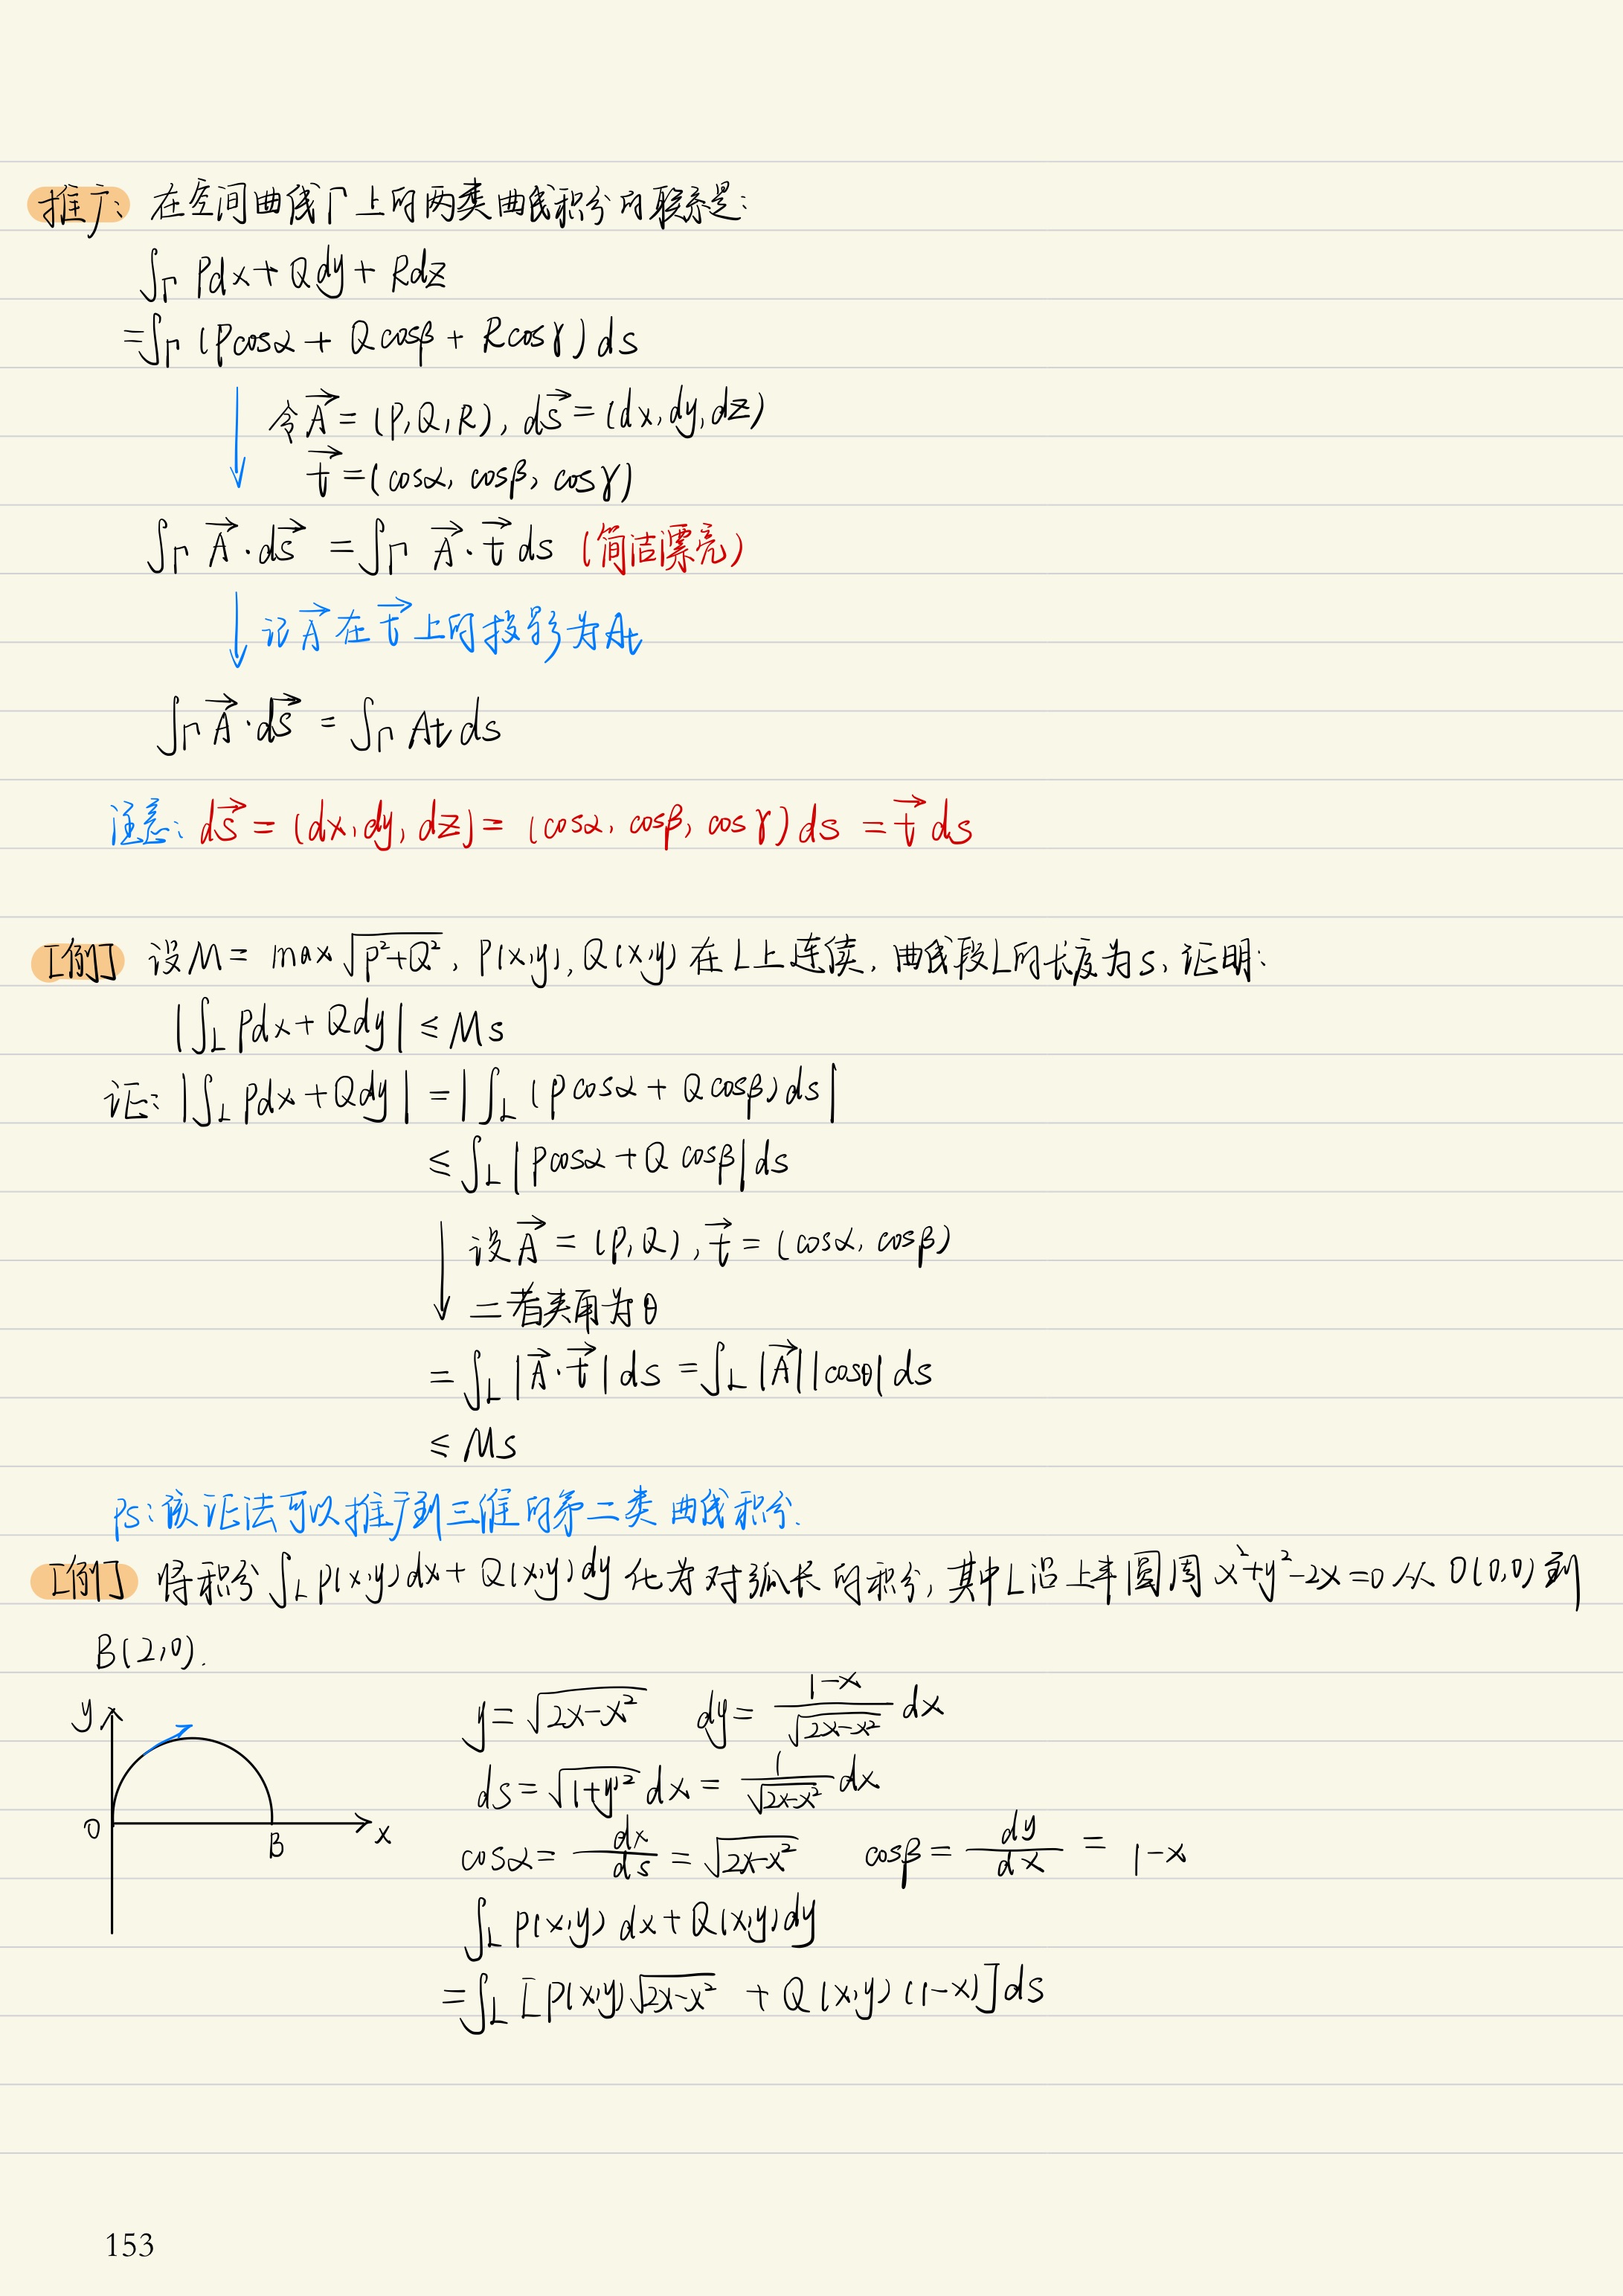 推广: 在空间曲线Γ上的两类曲线积分的联系是:
∫_Γ Pdx+Qdy+Rdz
=∫_Γ (Pcosα+Qcosβ+Rcosγ)ds
令A⃗=(P,Q,R), ds⃗=(dx,dy,dz)
t⃗=(cosα, cosβ, cosγ)
∫_Γ A⃗·ds⃗ =∫_Γ A⃗·t⃗ ds (简洁漂亮)
记A⃗在t⃗上的投影为At
∫_Γ A⃗·ds⃗ = ∫_Γ At ds
注意: ds⃗=(dx,dy,dz)=(cosα, cosβ, cosγ)ds=t⃗ ds
[例] 设M= max√(P²+Q²), P(x,y), Q(x,y)在L上连续, 曲线段L的长度为s, 证明:
|∫_L Pdx+Qdy| ≤ Ms
证: |∫_L Pdx+Qdy| =|∫_L (Pcosα+Qcosβ)ds|
≤∫_L |Pcosα+Qcosβ|ds
设A⃗=(P,Q), t⃗=(cosα, cosβ)
二者夹角为θ
=∫_L |A⃗·t⃗|ds =∫_L |A⃗||cosθ|ds
≤ Ms
ps:该证法可以推广到三维的第二类曲线积分.
[例] 将积分∫_L P(x,y)dx+Q(x,y)dy化为对弧长的积分, 其中L沿上半圆周x²+y²-2x=0从O(0,0)到
B(2,0).
y
O
B
x
y=√(2x-x²) dy= (1-x)/√(2x-x²) dx
ds=√(1+y'²) dx= 1/√(2x-x²) dx
cosα= dx/ds =√(2x-x²) cosβ= dy/dx = 1-x
∫_L P(x,y)dx+Q(x,y)dy
=∫_L [P(x,y)√(2x-x²) + Q(x,y)(1-x)]ds
153